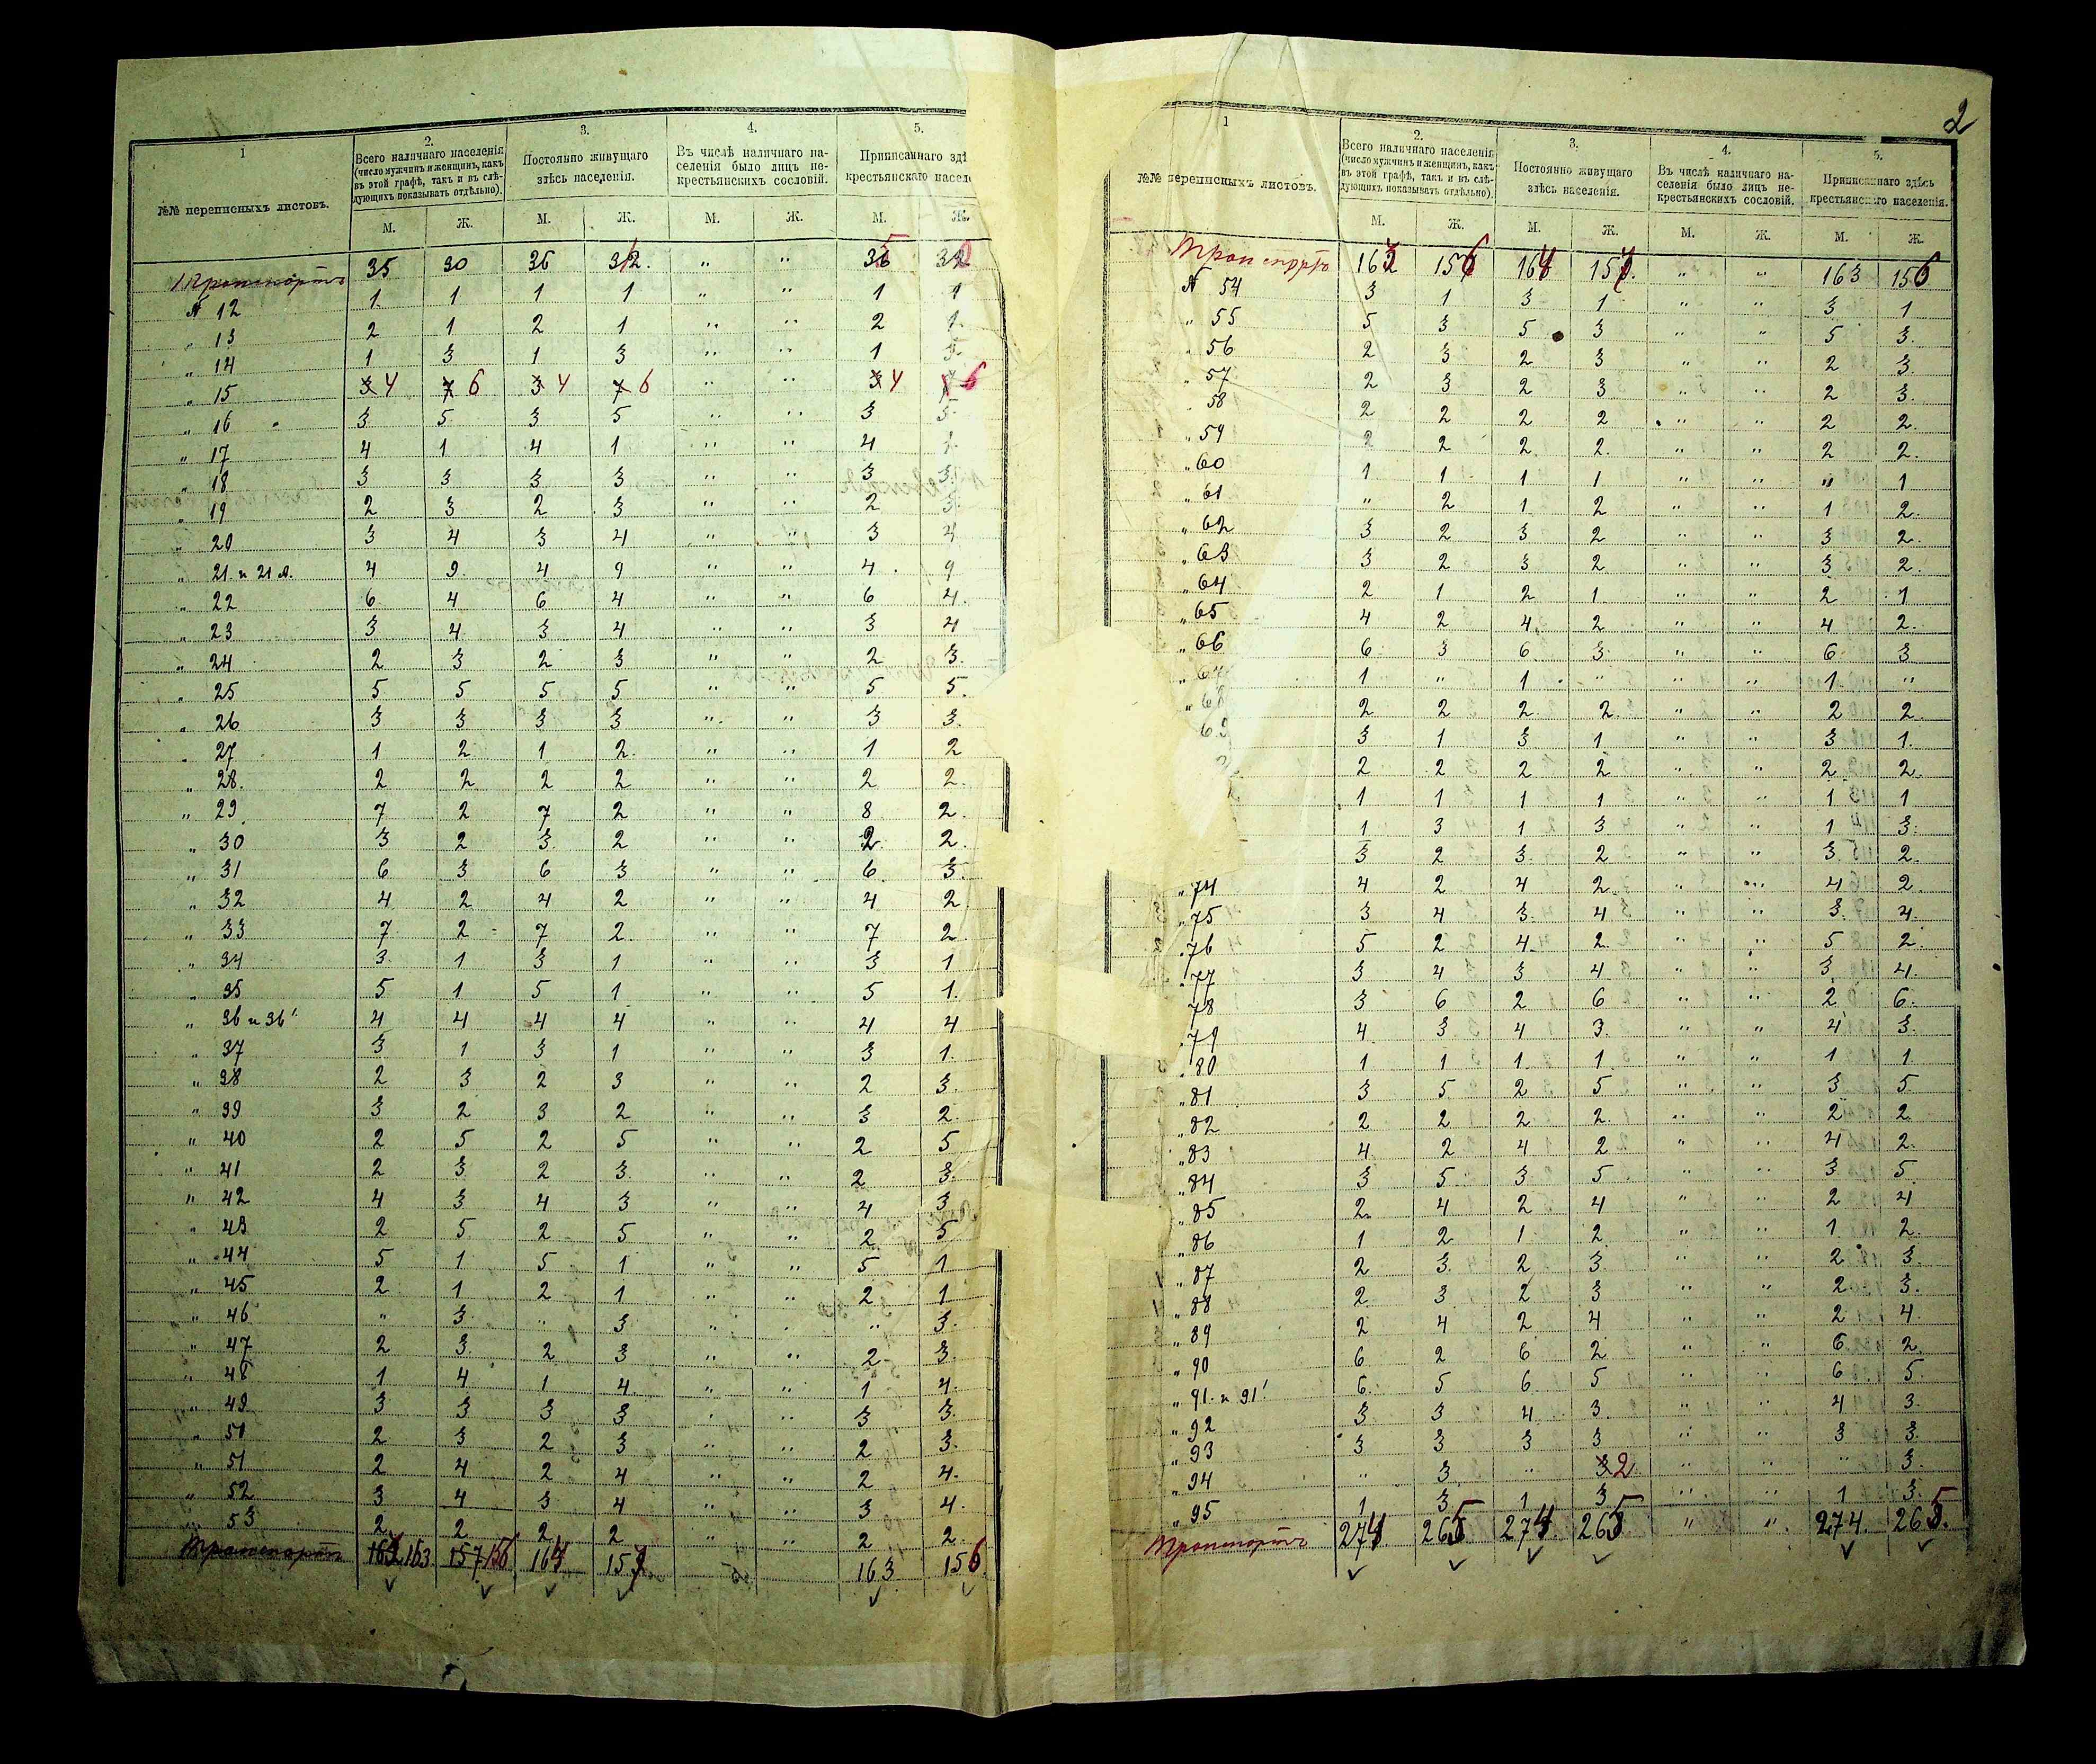 2
1
2.
3.
4.
5.
№№ переписныхъ листовъ.
Всего наличнаго населенія
(число мужчинъ и женщинъ, какъ
въ этой графѣ, такъ и въ слѣ-
дующихъ показывать отдѣльно).
Постоянно живущаго
здѣсь населенія.
Въ числѣ наличнаго на-
селенія было лицъ не-
крестьянскихъ сословій.
Приписаннаго зді
крестьянскаго населе
М. Ж. М. Ж. М. Ж. М. Ж.
Транспортъ 35 30 36 " "
№ 12 1 1 1 1 " " 1 1
" 13 2 1 2 1 " " 2 1
" 14 1 3 1 3 " " 1 3
" 15 3 4 7 6 3 4 7 6 " " 3 4 7 6
" 16 3 5 3 5 " " 3 5
" 17 4 1 4 1 " " 4 1
" 18 3 3 3 3 " " 3 3
" 19 2 3 2 3 " " 2 3
" 20 3 4 3 4 " " 3 4
" 21 и 21 а. 4 9 4 9 " " 4 9
" 22 6 4 6 4 " " 6 4
" 23 3 4 3 4 " " 3 4
" 24 2 3 2 3 " " 2 3
" 25 5 5 5 5 " " 5 5
" 26 3 3 3 3 " " 3 3
" 27 1 2 1 2 " " 1 2
" 28 2 2 2 2 " " 2 2
" 29 7 2 7 2 " " 8 2
" 30 3 2 3 2 " " 2 2
" 31 6 3 6 3 " " 6 3
" 32 4 2 4 2 " " 4 2
" 33 7 2 7 2 " " 7 2
" 34 3 1 3 1 " " 3 1
" 35 5 1 5 1 " " 5 1
" 36 и 36' 4 4 4 4 " " 4 4
" 37 3 1 3 1 " " 3 1
" 38 2 3 2 3 " " 2 3
" 39 3 2 3 2 " " 3 2
" 40 2 5 2 5 " " 2 5
" 41 2 3 2 3 " " 2 3
" 42 4 3 4 3 " " 4 3
" 43 2 5 2 5 " " 2 5
" 44 5 1 5 1 " " 5 1
" 45 2 1 2 1 " " 2 1
" 46 " 3 " 3 " " " 3
" 47 2 3 2 3 " " 2 3
" 48 1 4 1 4 " " 1 4
" 49 3 3 3 3 " " 3 3
" 50 2 3 2 3 " " 2 3
" 51 2 4 2 4 " " 2 4
" 52 3 4 3 4 " " 3 4
" 53 2 2 2 2 " " 2 2
Транспортъ 163 157 156 164 163 156
1
2.
3.
4.
5.
№№ переписныхъ листовъ.
Всего наличнаго населенія
(число мужчинъ и женщинъ, какъ
въ этой графѣ, такъ и въ слѣ-
дующихъ показывать отдѣльно).
Постоянно живущаго
здѣсь населенія.
Въ числѣ наличнаго на-
селенія было лицъ не-
крестьянскихъ сословій.
Приписаннаго здѣсь
крестьянскаго населенія.
М. Ж. М. Ж. М. Ж. М. Ж.
Транспортъ 163 156 164 157 " " 163 156
№ 54 3 1 3 1 " " 3 1
" 55 5 3 5 3 " " 5 3
" 56 2 3 2 3 " " 2 3
" 57 2 3 2 3 " " 2 3
" 58 2 2 2 2 " " 2 2
" 59 2 2 2 2 " " 2 2
" 60 1 1 1 1 " " " 1
" 61 " 2 1 2 " " 1 2
" 62 3 2 3 2 " " 3 2
" 63 3 2 3 2 " " 3 2
" 64 2 1 2 1 " " 2 1
" 65 4 2 4 2 " " 4 2
" 66 6 3 6 3 " " 6 3
" 67 1 " 1 " " " 1 "
" 68 2 2 2 2 " " 2 2
69 3 1 3 1 " " 3 1
2 2 2 2 " " 2 2
1 1 1 1 " " 1 1
1 3 1 3 " " 1 3
3 2 3 2 " " 3 2
" 74 4 2 4 2 " " 4 2
" 75 3 4 3 4 " " 3 4
" 76 5 2 4 2 " " 5 2
" 77 3 4 3 4 " " 3 4
" 78 3 6 2 6 " " 2 6
" 79 4 3 4 3 " " 4 3
" 80 1 1 1 1 " " 1 1
" 81 3 5 2 5 " " 3 5
" 82 2 2 2 2 " " 2 2
" 83 4 2 4 2 " " 4 2
" 84 3 5 3 5 " " 3 5
" 85 2 4 2 4 " " 2 4
" 86 1 2 1 2 " " 1 2
" 87 2 3 2 3 " " 2 3
" 88 2 3 2 3 " " 2 3
" 89 2 4 2 4 " " 2 4
" 90 6 2 6 2 " " 6 2
" 91 и 91' 6 5 6 5 " " 6 5
" 92 3 3 4 3 " " 4 3
" 93 3 3 3 3 " " 3 3
" 94 " 3 " 3 2 " " " 3
" 95 1 3 1 3 " " 1 3
Транспортъ 274 265 274 265 " " 274 265